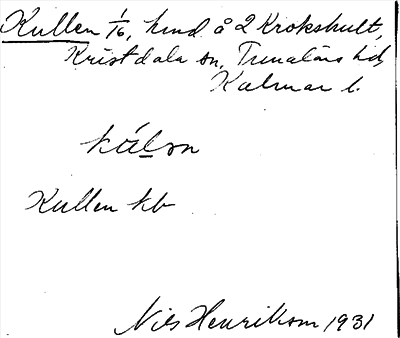 Kullen 1/6, hmd å 2 Krokshult,
Kristdala sn, Tunaläns hd,
Kalmar l.
kúlən
Kullen kb
Nils Henrikson 1931